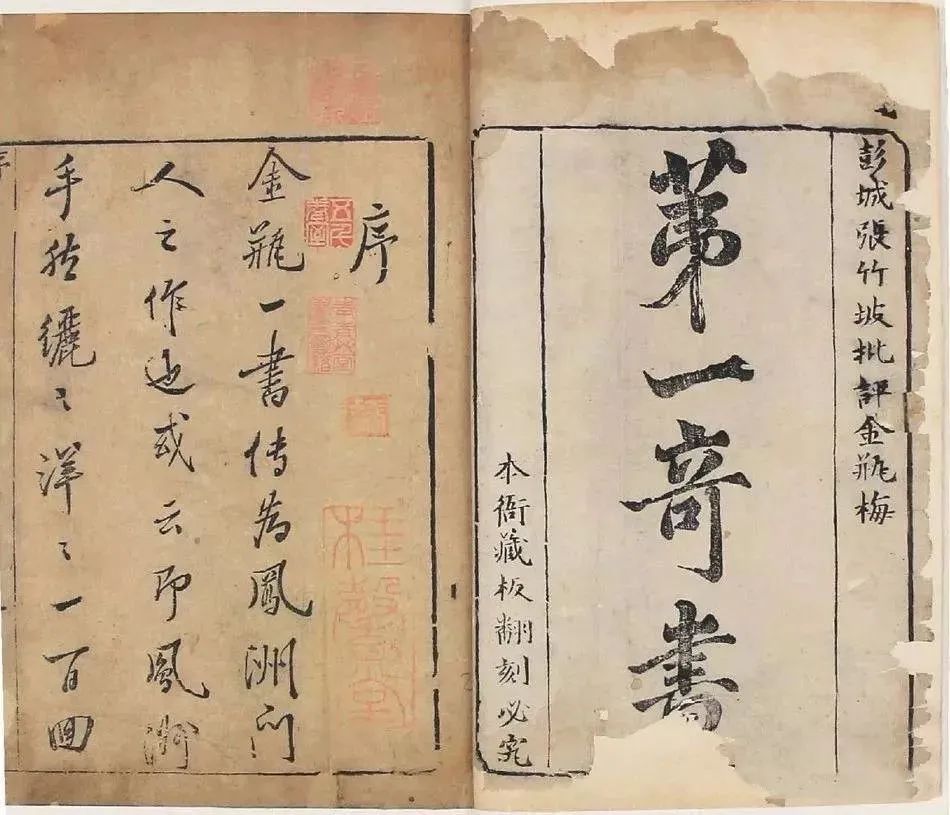 彭城張竹坡批評金瓶梅
第一奇書
本衙藏板翻刻必究
序
金瓶一書傳為鳳洲門
人之作也或云即鳳洲
手然纚〻洋〻一百回